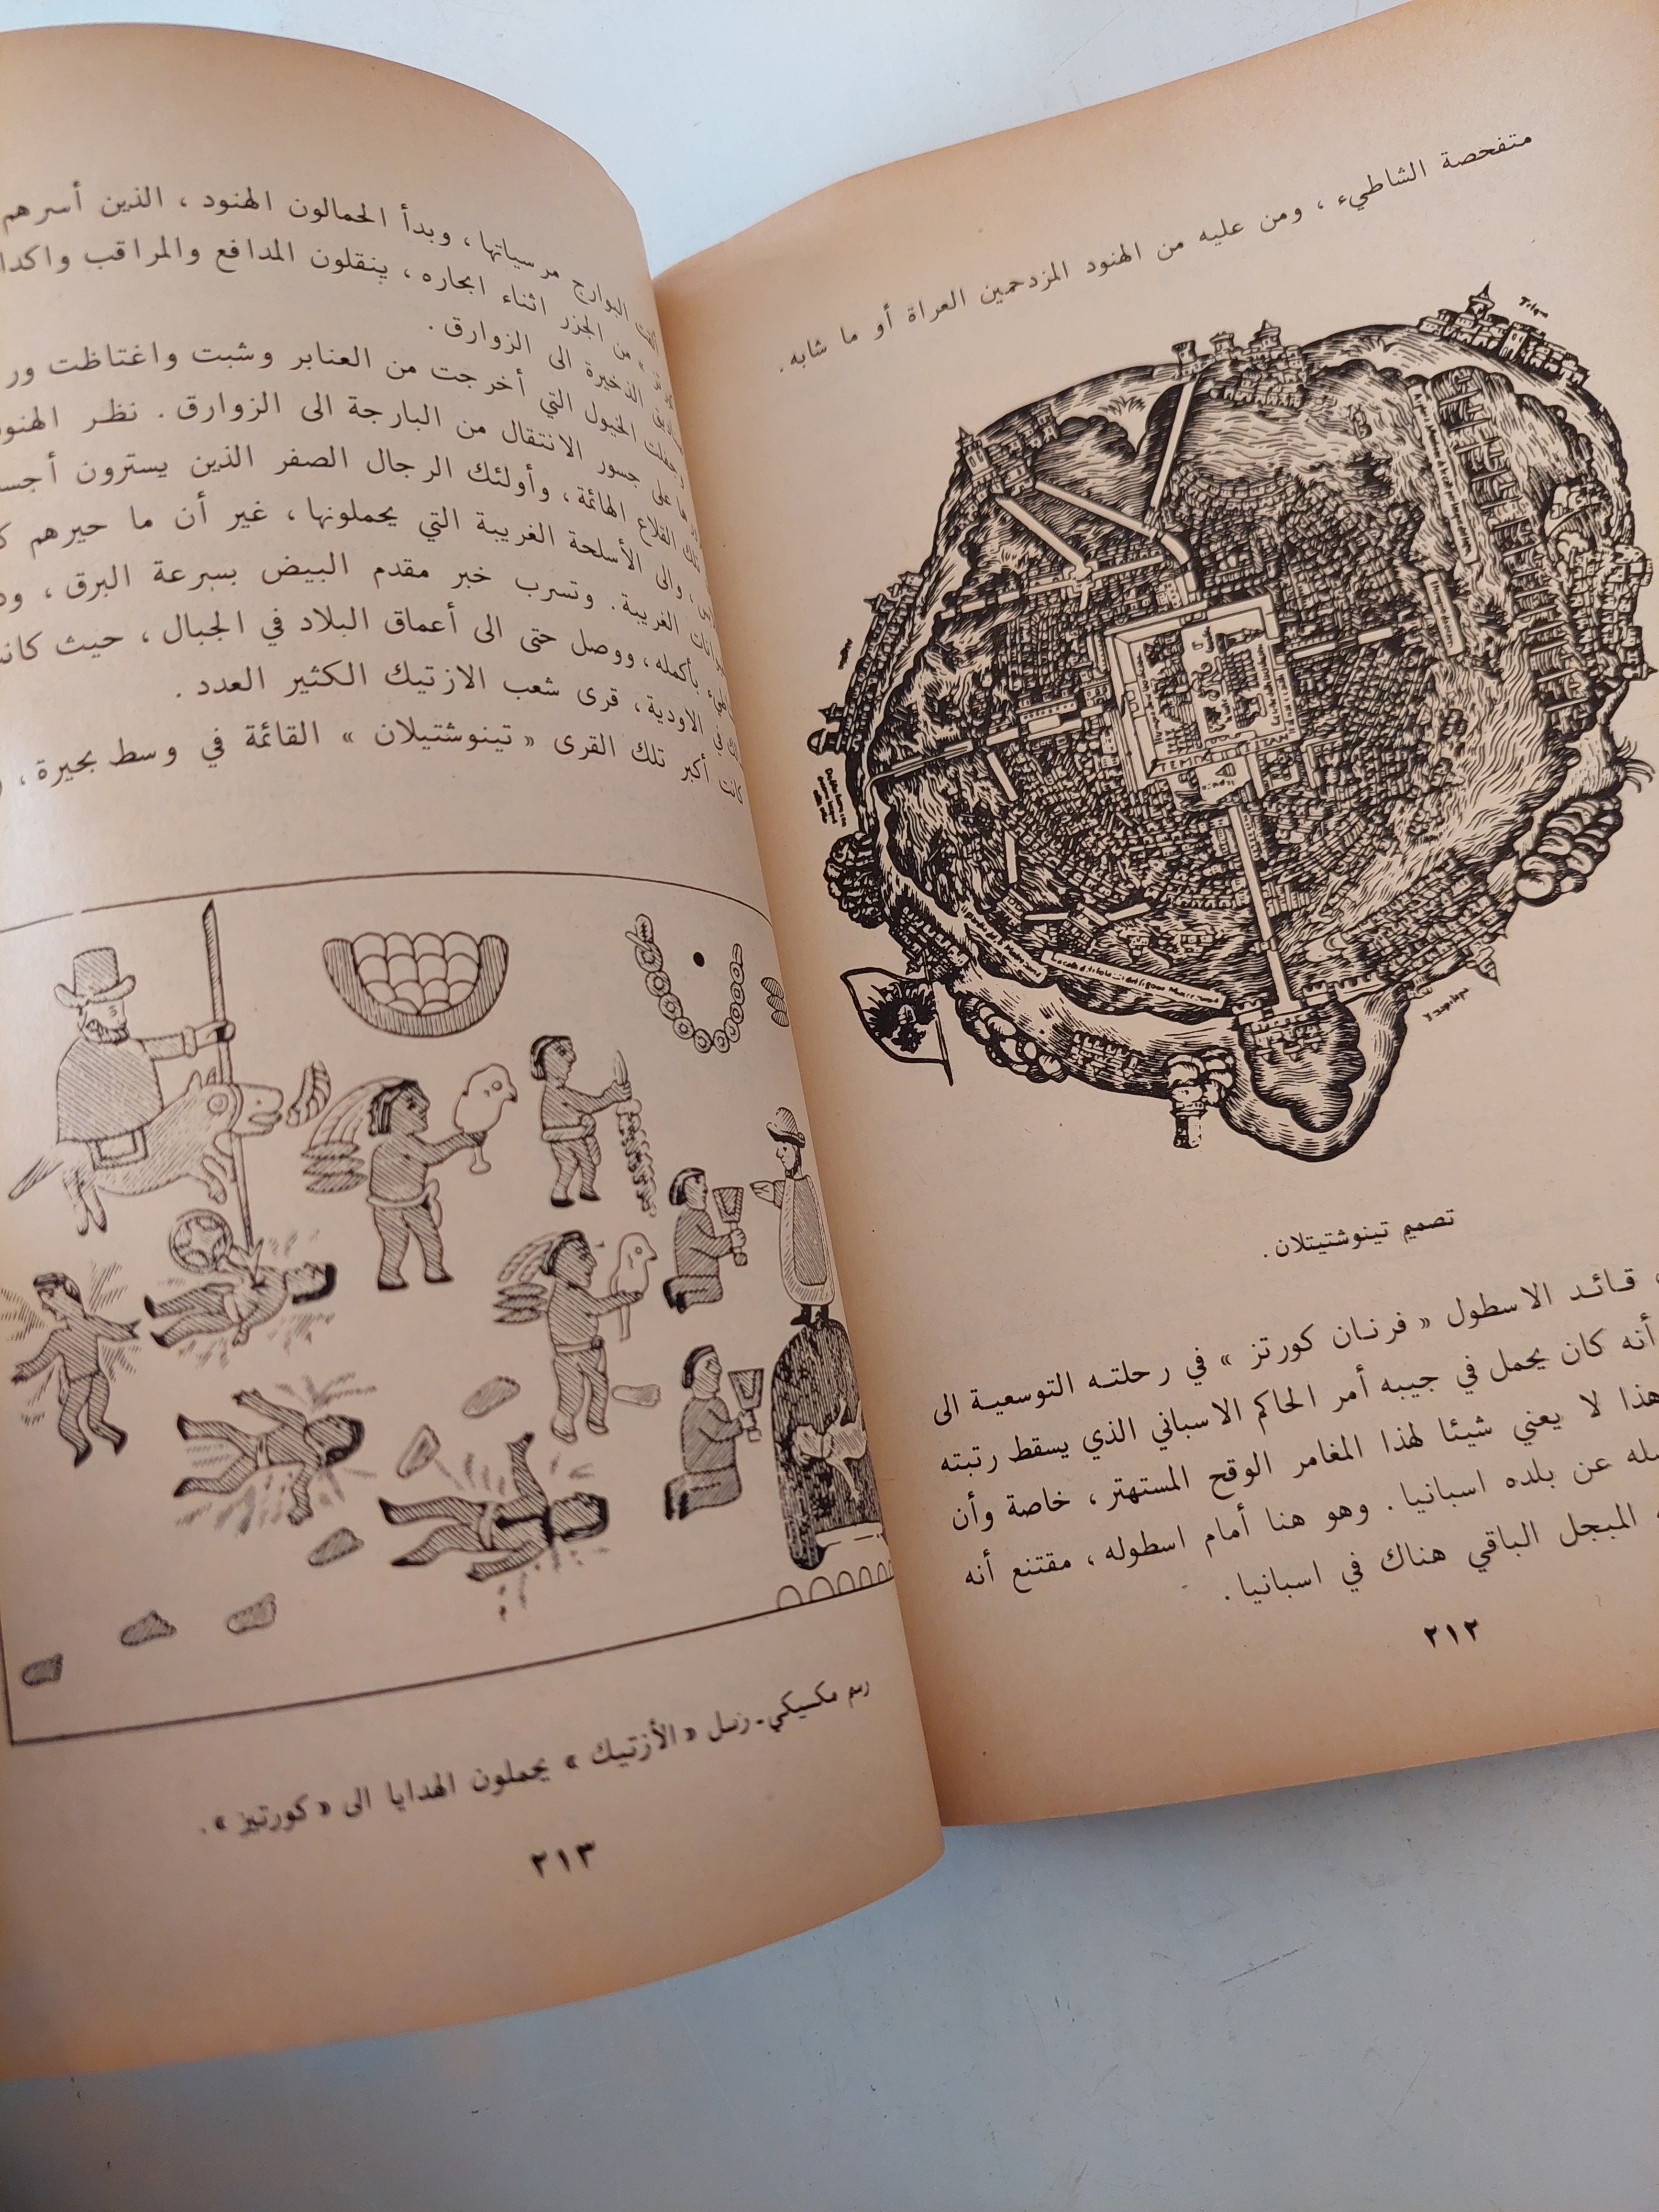 متفحصة الشاطيء ، ومن عليه من الهنود المزدحمين العراة أو ما شابه .
TEMIXTITAN
تصميم تينوشتيتلان .
قائد الاسطول « فرنان كورتز » في رحلته التوسعية الى
أنه كان يحمل في جيبه أمر الحاكم الاسباني الذي يسقط رتبته
هذا لا يعني شيئا لهذا المغامر الوقح المستهتر ، خاصة وأن
عن بلده اسبانيا . وهو هنا أمام اسطوله ، مقتنع أنه
المبجل الباقي هناك في اسبانيا .
٢١٢
البوارج مرسياتها ، وبدأ الحمالون الهنود ، الذين أسرهم
» من الجزر اثناء ابحاره ، ينقلون المدافع والمراقب
الذخيرة الى الزوارق .
وجفلت الخيول التي أخرجت من العنابر وشبت واغتاظت
على جسور الانتقال من البارجة الى الزوارق . نظر
تلك القلاع الهائمة ، وأولئك الرجال الصفر الذين يسترون
، والى الأسلحة الغريبة التي يحملونها ، غير أن ما حيرهم
الغريبة . وتسرب خبر مقدم البيض بسرعة البرق ،
بأكمله ، ووصل حتى الى أعماق البلاد في الجبال ، حيث
الاودية ، قرى شعب الازتيك الكثير العدد .
كانت أكبر تلك القرى « تينوشتيلان » القائمة في وسط بحيرة ،
رسم مكسيكي - رسل « الأزتيك » يحملون الهدايا الى « كورتيز » .
٢١٣